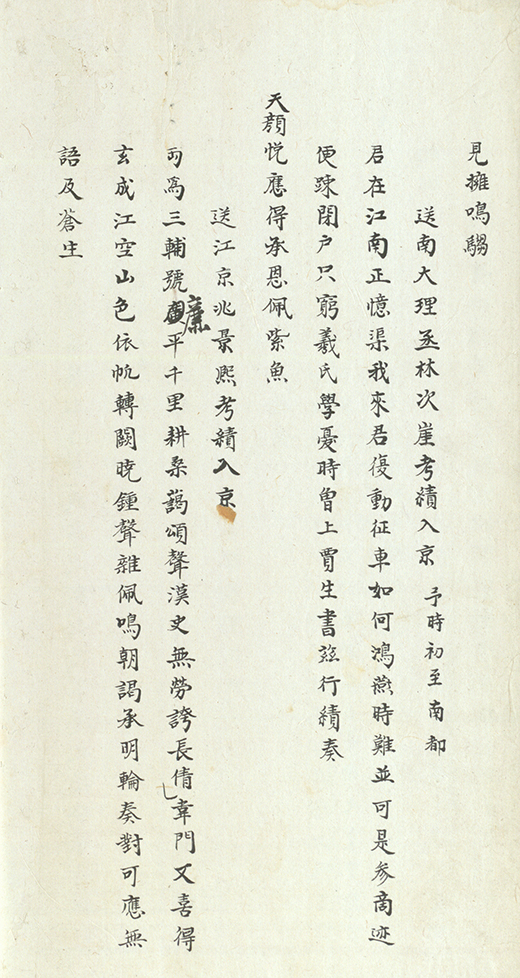 見擁鳴騶
送南大理丞林次崖考績入京 予時初至南都
君在江南正憶渠我來君復動征車如何鴻燕時難並可是參商迹
便踈閉户只窮羲氏學憂時曾上賈生書茲行績奏
天顔悅應得承恩佩紫魚
送江京兆景熈考績入京
両爲三輔號廉平千里耕桑藹頌聲漢史無勞誇長倩韋門又喜得
玄成江空山色依帆轉闕曉鍾聲雜佩鳴朝謁承明輪奏對可應無
語及蒼生